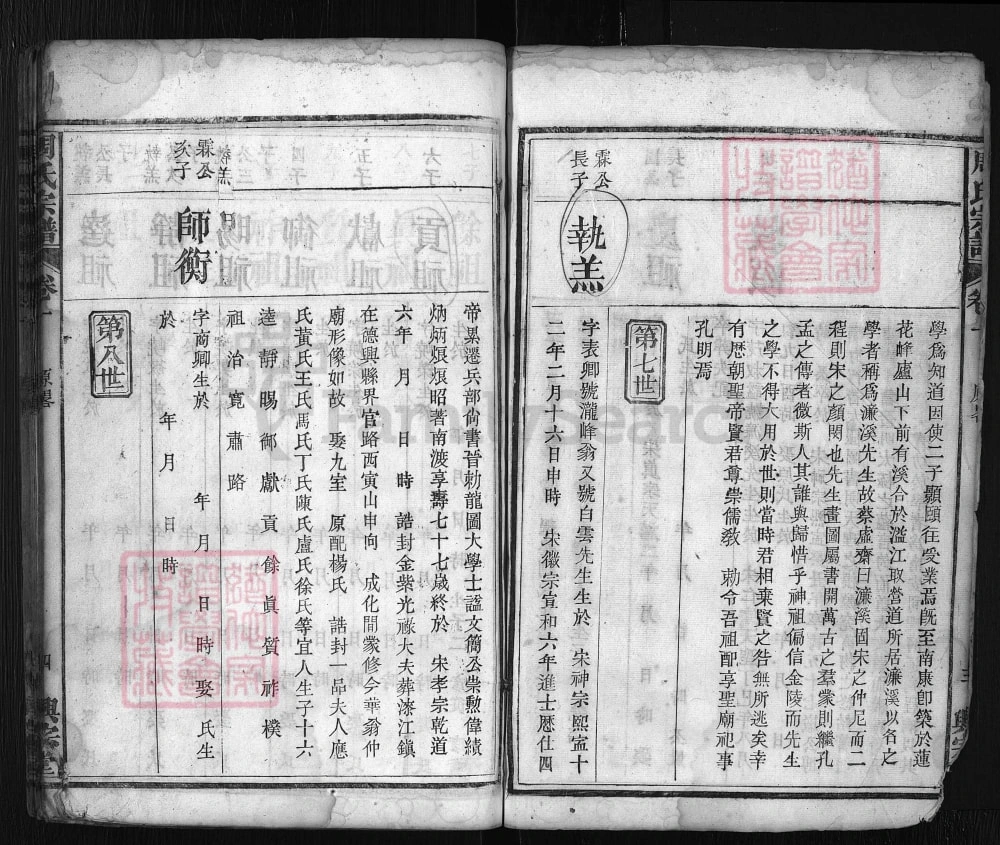 學為知道因使二子顥頤往受業焉旣至南康卽築於蓮
花峰廬山下前有溪合於湓江取營道所居濂溪以名之
學者稱為濂溪先生故蔡虛齋曰濂溪固宋之仲尼而二
程則宋之顏閔也先生畫圖屬書開萬古之羣蒙則繼孔
孟之傳者微斯人其誰與歸惜乎神祖偏信金陵而先生
之學不得大用於世則當時君相棄賢之咎無所逃矣幸
有歷朝聖帝賢君尊崇儒敎 勅令吾祖配享聖廟祀事
孔明焉
第七世
霖公長子
執羔
字表卿號瀧峰翁又號白雲先生生於 宋神宗熙寧十
二年二月十六日申時 宋徽宗宣和六年進士歷仕四
周氏宗譜
卷一
帝累遷兵部尚書晉勅龍圖大學士諡文簡公崇勲偉績
炳炳烺烺昭著南渡享壽七十七歲終於 宋孝宗乾道
六年 月 日 時 誥封金紫光祿大夫葬漆江鎮
在德興縣界官路西寅山申向 成化間蒙修今華翁仲
廟形像如故 娶九室 原配楊氏 誥封一品夫人應
氏黃氏王氏馬氏丁氏陳氏盧氏徐氏等宜人生子十六
逵 靜 賜 御 獻 貢 餘 眞 質 祚 樸
祖 治 寬 肅 路
第八世
霖公次子
師衡
字商卿生於 年 月 日 時 娶 氏生
於 年 月 日 時
周氏宗譜
卷一
四
FamilySearch